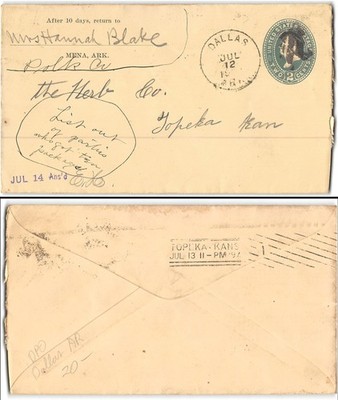 After 10 days, return to
Mrs Hannah Blake
MENA, ARK.
Polk Co
DALLAS
JUL
12
ARK.
UNITED STATES
TWO 2 CENTS
The Herb Co.
Topeka Kan
List out
of
package
JUL 14 Ans'd
TOPEKA-KANS
JUL 13 11-PM '97
DPO
Dallas AR
20-